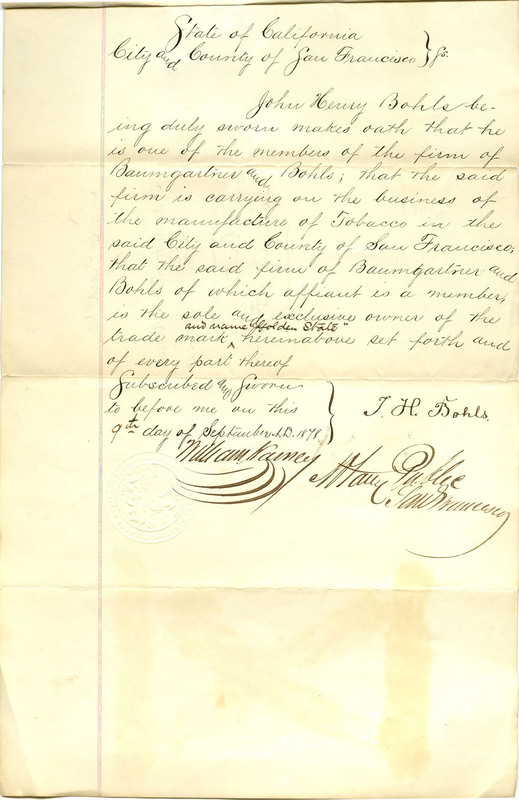 State of California
City and County of San Francisco } ss.
John Henry Bohls be-
ing duly sworn makes oath that he
is one of the members of the firm of
Baumgartner and Bohls; that the said
firm is carrying on the business of
the manufacture of Tobacco in the
said City and County of San Francisco;
that the said firm of Baumgartner and
Bohls of which affiant is a member,
is the sole and exclusive owner of the
and name "Golden State"
trade mark ‸ hereinabove set forth and
of every part thereof
Subscribed and Sworn
to before me on this } J. H. Bohls.
9th day of September A.D. 1878
William Kamey Notary Public
San Francisco